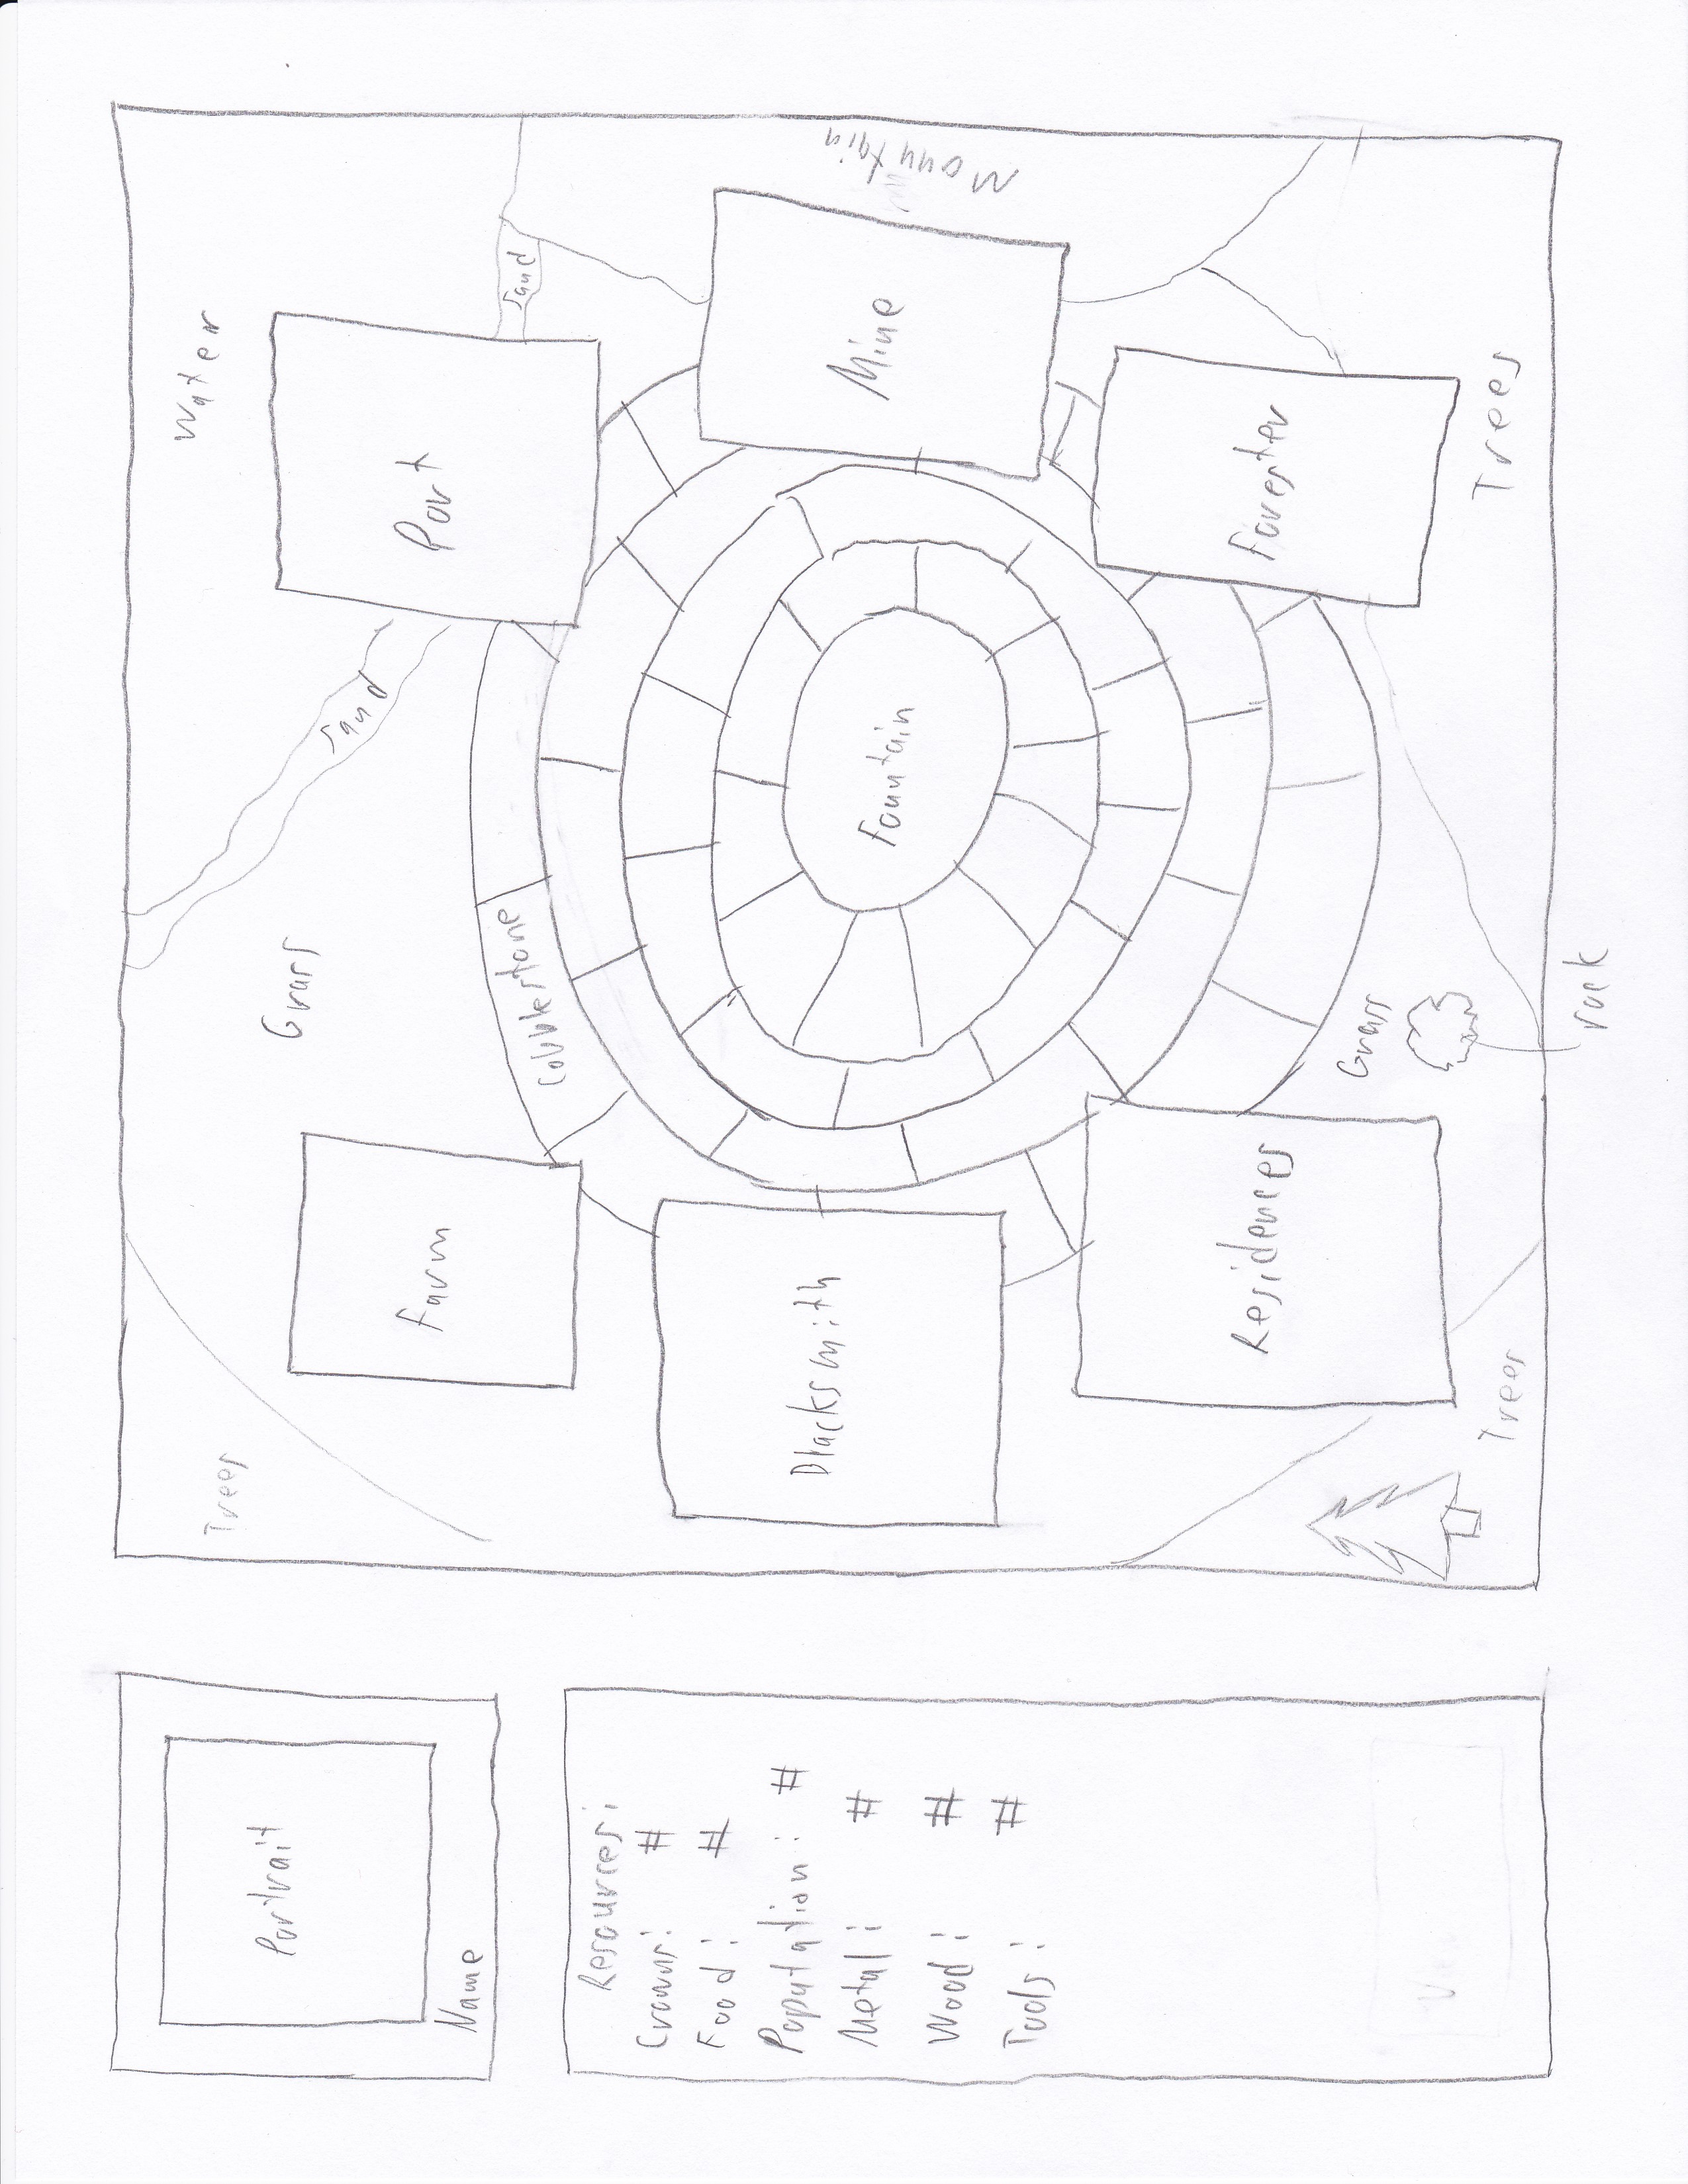 Portrait
Name
Resources:
Crowns: #
Food: #
Population: #
Metal: #
Wood: #
Tools: #
Trees
Grass
Water
Sand
Farm
Port
Cobblestone
Sand
Blacksmith
Fountain
Mine
Mountain
Residences
Forester
Grass
Trees
Trees
rock